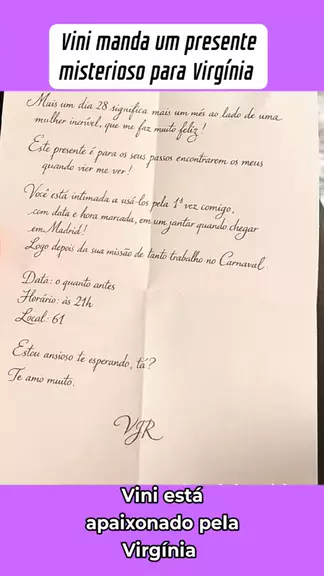 Vini manda um presente
misterioso para Virgínia
Mais um dia 28 significa mais um mês ao lado de uma
mulher incrível, que me faz muito feliz!
Este presente é para os seus passos encontrarem os meus
quando vier me ver!
Você está intimada a usá-los pela 1ª vez comigo,
com data e hora marcada, em um jantar quando chegar
em Madrid!
Logo depois da sua missão de tanto trabalho no Carnaval.
Data: o quanto antes
Horário: às 21h
Local: 61
Estou ansioso te esperando, tá?
Te amo muito.
VJR
Vini está
apaixonado pela
Virgínia